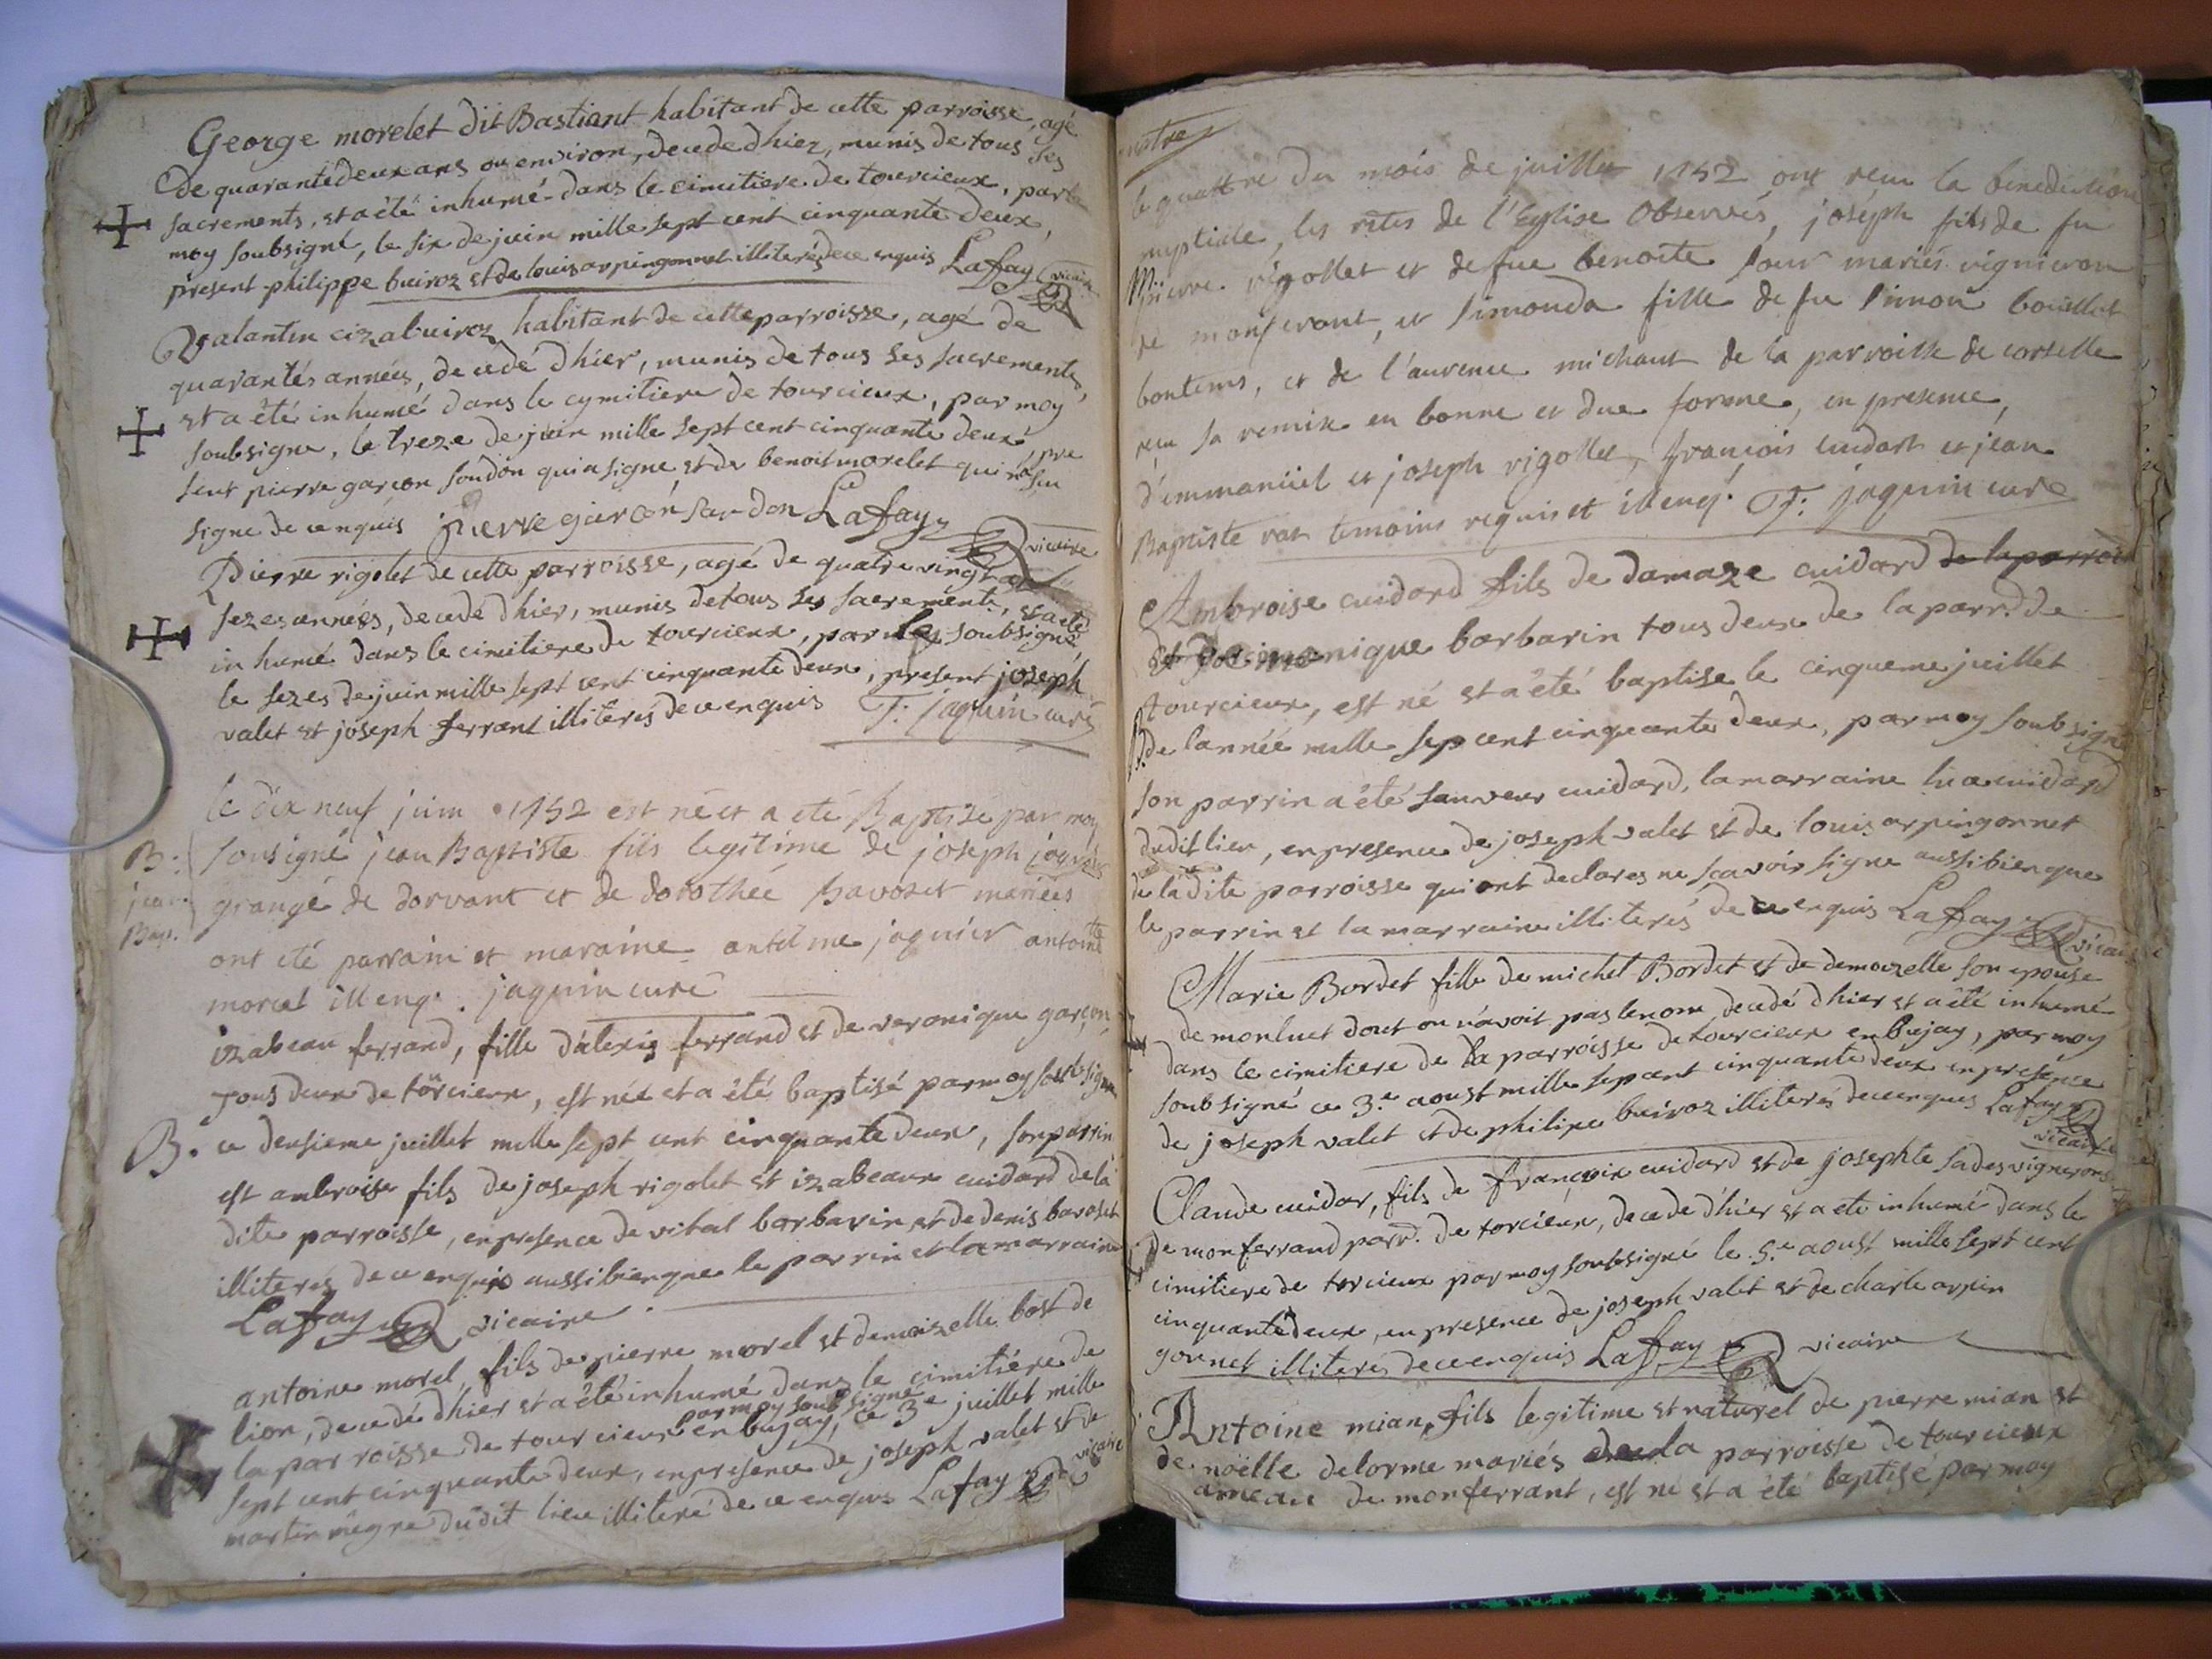 George morelet dit Bastiant habitant de cette parroisse, agé
de quarante deux ans ou environ, decede d hier, munis de tous ses
sacrements, et a été inhumé dans le cimitiere de tourcieux, par
moy soubsigné, le six de juin mille sept cent cinquante deux,
present philippe buiroz et de louis arpingonnet illiterés de ce enquis Lafay vicaire
Valantin cizabuiroz habitant de cette parroisse, agé de
quarantés années, decedé d hier, munis de tous ses sacrements,
et a été inhumé dans le cymitiere de tourcieux, par moy
soubsigne, le treze de juin mille sept cent cinquante deux pre
sent pierre garcon sondon qui a signe et de benoit morelet qui n'a sçu
signe de ce enquis pierre garcon Lafay
vicaire
Pierre rigolet de cette parroisse, agé de quatre vingt et
sezes années, decede d hier, munis de tous ses sacrements, et a eté
inhumé dans le cimitiere de tourcieux, par soubsigné,
le sezes de juin mille sept cent cinquante deux, present joseph
valet et joseph ferrant illiterés de ce enquis F: jaquin curé
le dix neuf juin 1752 est né et a eté Baptisé par moy
B: sousigné jean Baptiste fils legitime de joseph
jean grangé de dorvant et de dorothée bavoset mariées
Bap. ont eté parrain et maraine antelme jaquier antoinette
morcel ill enq. jaquin curé
izabeau ferrand, fille d'alexis ferrand et de veronique garçon
tous deux de törcieux, est née et a été baptisé par moy soubsigné
B. ce deusieme juillet mille sept cent cinquante deux, son parrin
est ambroise fils de joseph rigolet et izabeaux cuidard de la
dite parroisse, en presence de vital barbarin et de denis bavoset
illiterés de ce enquis aussi bien que le parrin et la marraine
Lafay vicaire
antoine morel, fils de pierre morel et demoizelle bost de
lion, decedé d hier et a été inhumé dans le cimitiére de
par moy soub signé
la parroisse de tourcieux en bujay, ce 3e juillet mille
sept cent cinquante deux, en presence de joseph valet et de
martin nêgre dudit lieu illiteré de ce enquis Lafay vicaire
le quattre du mois de juillet 1752 ont receu la benediction
nuptiale, les rites de l'Eglise Observés, joséph fils de fu
M pierre rigollet et de fue benoite jour mariés vignieron
de monferant, et simonda fille de fu simon bouillet
bontems, et de l'aurence michaut de la parroisse de corselle
veu sa remise en bonne et due forme, en presence,
d'emmanüel et joseph rigollet, françois cuidart et jean
Baptiste var temoins requis et ill enq. F: jaquin curé
Ambroise cuidard fils de damaze cuidard de la parrois
nique barbarin tous deux de la parr. de
tourcieux, est né et a été baptise le cinqueme juillet
B. de l'année mille sep cent cinquante deux, par moy soubsigné
son parrin a été sauveur cuidard, la marraine cuidard
dudit lieu, en presence de joseph valet et de louis arpingonnet
de la dite parroisse qui ont declares ne sçavoir signe aussi bien que
le parrin et la marraine illiterés de ce enquis Lafay vicaire
Marie Bordet fille de michel Bordet et de demoizelle son epouse
de monluet dont on n'avoit pas le nom, decedé d hier et a été inhumé
dans le cimitiere de la parroisse de tourcieux en bujay, par moy
soubsigné ce 3.e aoust mille sep cent cinquante deux en presence
de joseph valet et de philipe buiroz illiterés de ce enques Lafay
vicaire
Claude cuidar, fils de françois cuidard et de josephte sades vignerons
de monferrand parr. de torcieux, decede d'hier et a eté inhumé dans le
cimitiere de torcieux par moy soubsigné le 5.e aoust mille sept cent
cinquante deux, en presence de joseph valet et de charle arpin
gonnet illiterés de ce enquis Lafay vicaire
Antoine mian, fils legitime et naturel de pierre mian et
de noëlle delorme mariés de la parroisse de tourcieux
ameau de monferrant, est né et a été baptisé par moy